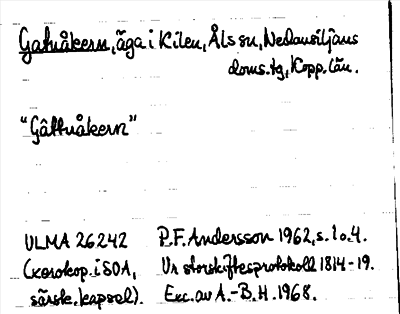 Gatuåkern, äga i Kilen, Åls sn, Nedansiljans
doms.tg, Kopp. län.
"Gåttuåkern"
ULMA 26242 P.F. Andersson 1962, s. 1 o. 4.
(xerokop. i SOA, Ur storskiftesprotokoll 1814-19.
särsk. kapsel). Exc. av A.-B. H. 1968.